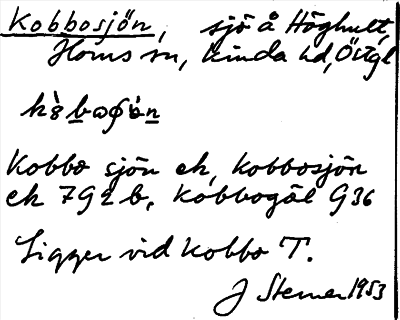 Kobbosjön, sjö å Höghult,
Horns sn, Kinda hd, Östgl
Kobbo sjön ek, Kobbosjön
ek 7G2b, Kobbogöl G36
Ligger vid Kobbo T.
J Stemer 1953